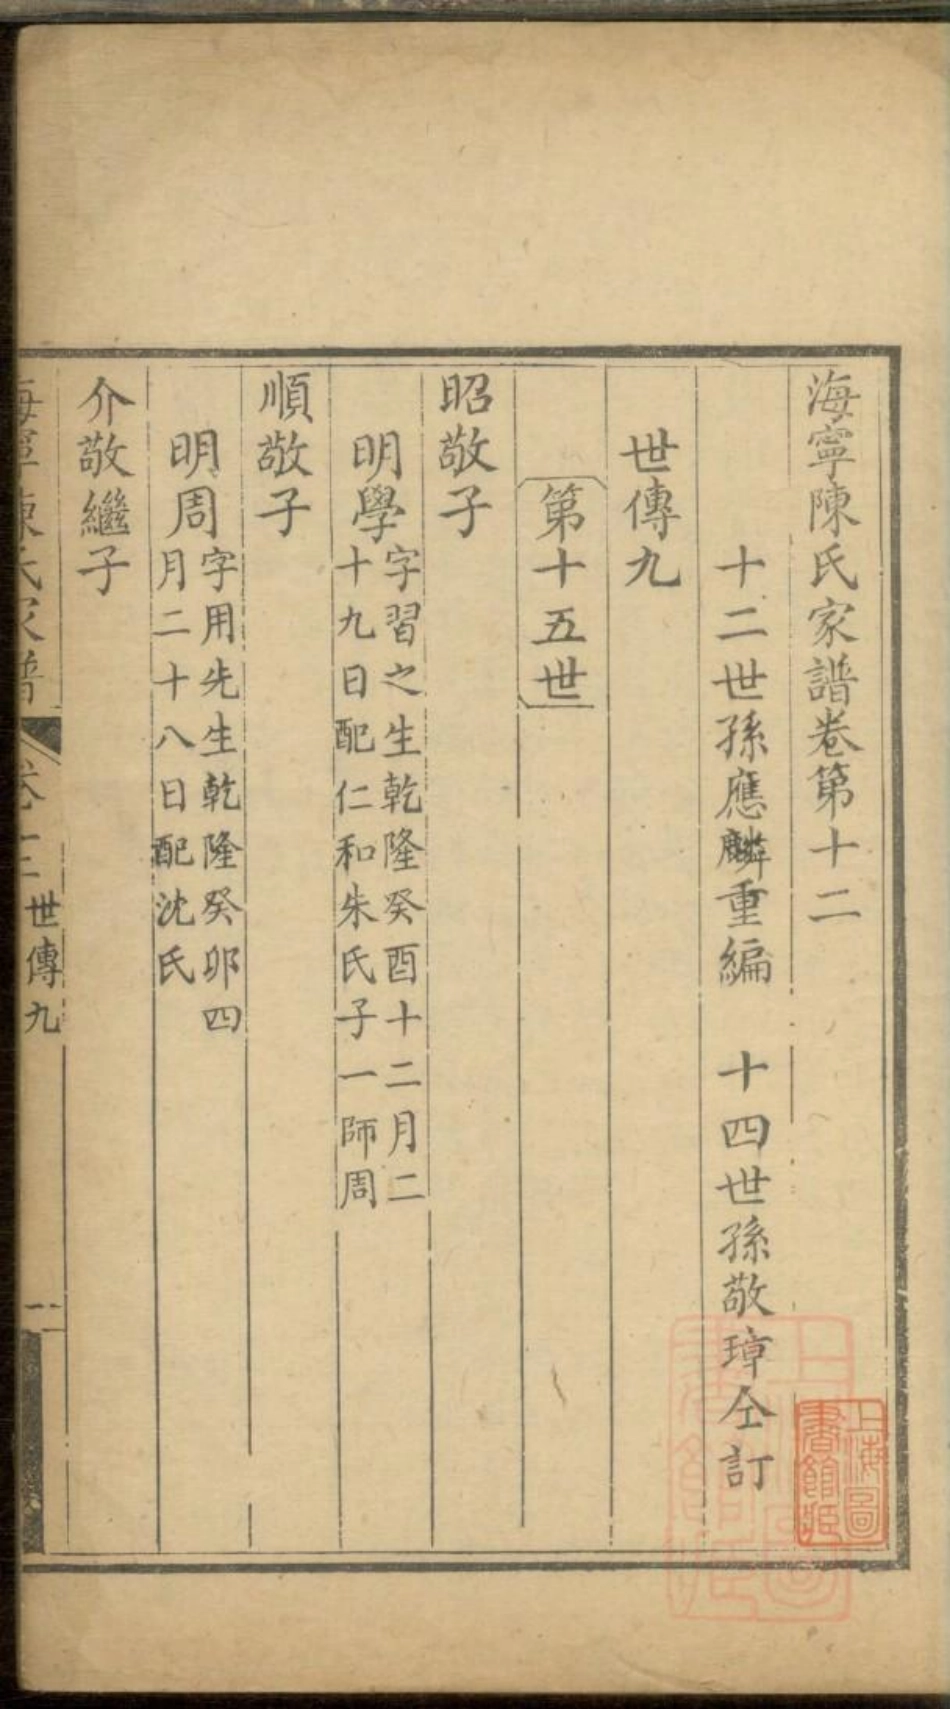 海寧陳氏家譜卷第十二
十二世孫應麟重編　十四世孫敬璋仝訂
世傳九
第十五世
昭敬子
明學
字習之生乾隆癸酉十二月二
十九日配仁和朱氏子一師周
順敬子
明周
字用先生乾隆癸卯四
月二十八日配沈氏
介敬繼子
海寧陳氏家譜
卷十二
世傳九
一
上海圖書館藏